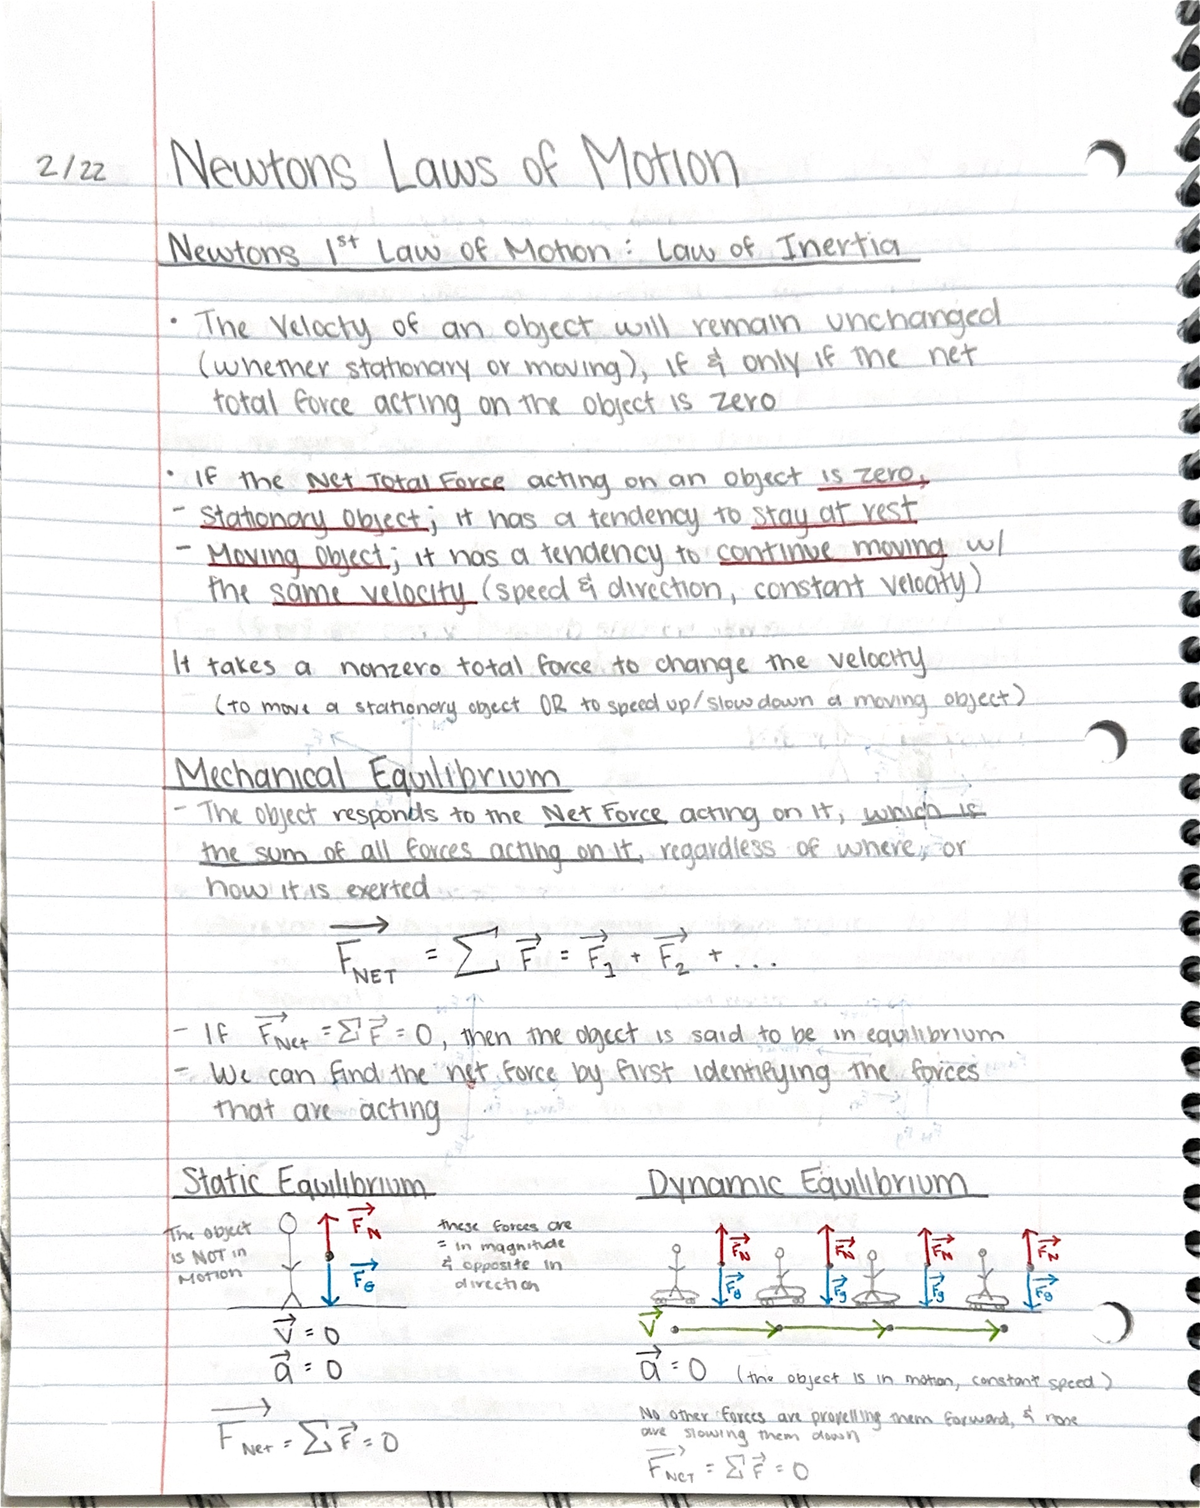 2/22 Newtons Laws of Motion
Newtons 1st Law of Motion: Law of Inertia
• The Velocty of an object will remain unchanged
(whether stationary or moving), if & only if the net
total force acting on the object is zero
• If the Net Total Force acting on an object is zero,
- Stationary Object; it has a tendency to stay at rest
- Moving Object; it has a tendency to continue moving w/
the same velocity (speed & direction, constant velocity)
It takes a nonzero total force to change the velocity
(to move a stationary object OR to speed up/slow down a moving object)
Mechanical Equilibrium
- The object responds to the Net Force acting on it, which is
the sum of all forces acting on it, regardless of where, or
how it is exerted
F⃗NET = Σ F⃗ = F⃗1 + F⃗2 + ...
- If F⃗Net = ΣF⃗ = 0, then the object is said to be in equilibrium
- We can find the net force by first identifying the forces
that are acting
Static Equilibrium
The object
is NOT in
Motion
F⃗N
F⃗G
these forces are
= in magnitude
& opposite in
direction
V⃗ = 0
a⃗ = 0
F⃗Net = ΣF⃗ = 0
Dynamic Equilibrium
F⃗N F⃗N F⃗N F⃗N
F⃗G F⃗g F⃗g F⃗G
V⃗
a⃗ = 0 (the object is in motion, constant speed)
No other forces are propelling them forward, & none
are slowing them down
F⃗NET = ΣF⃗ = 0